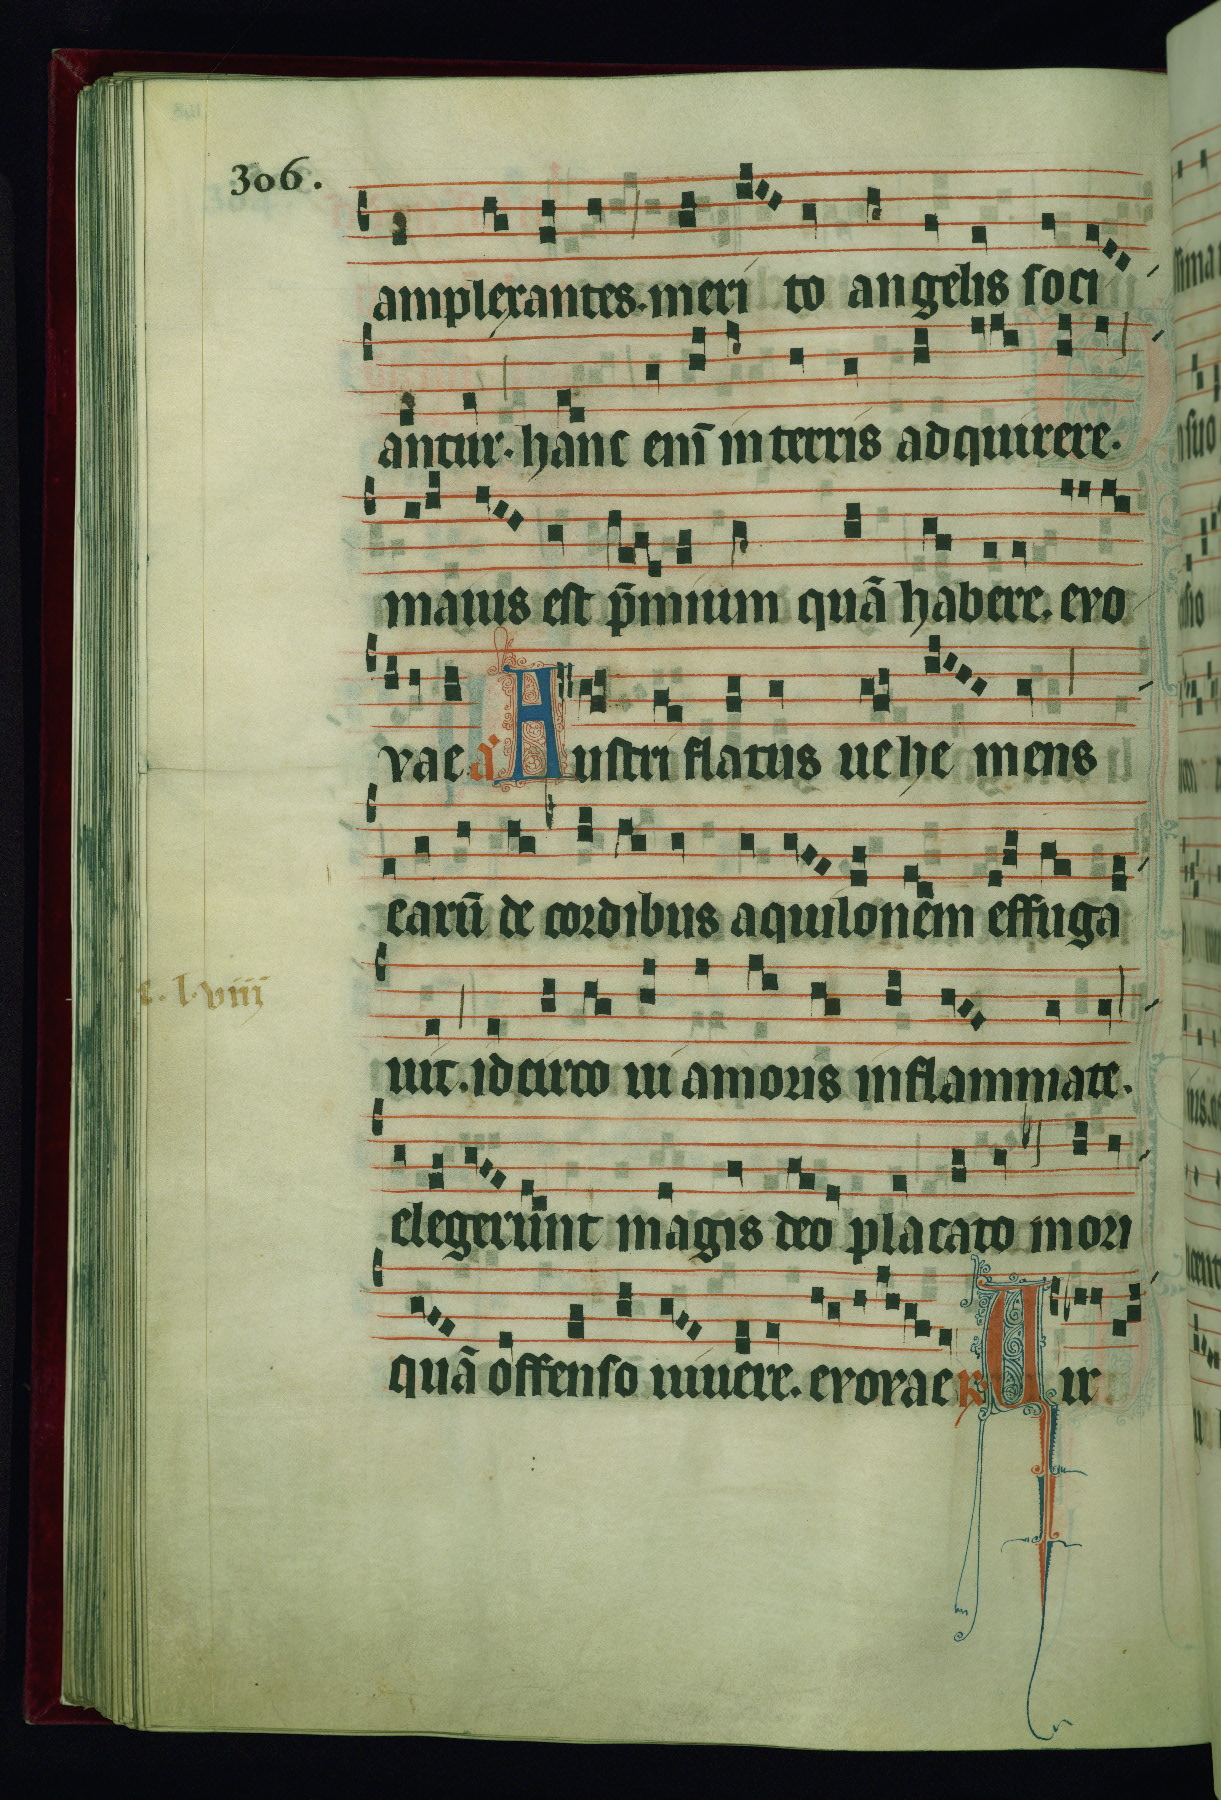 306.
amplexantes. meri to angelis soci
antur. hanc eni̅ in terris adquirere.
maius est p̅mium qua̅ habere. evo
vae a̅ Austri flatus uehe mens
earu̅ de cordibus aquilonem effuga
uit. idcirco in amoris inflammate.
c. l. viii
elegerunt magis deo placato mori
qua̅ offenso uiuere. evovae R̷ Uir